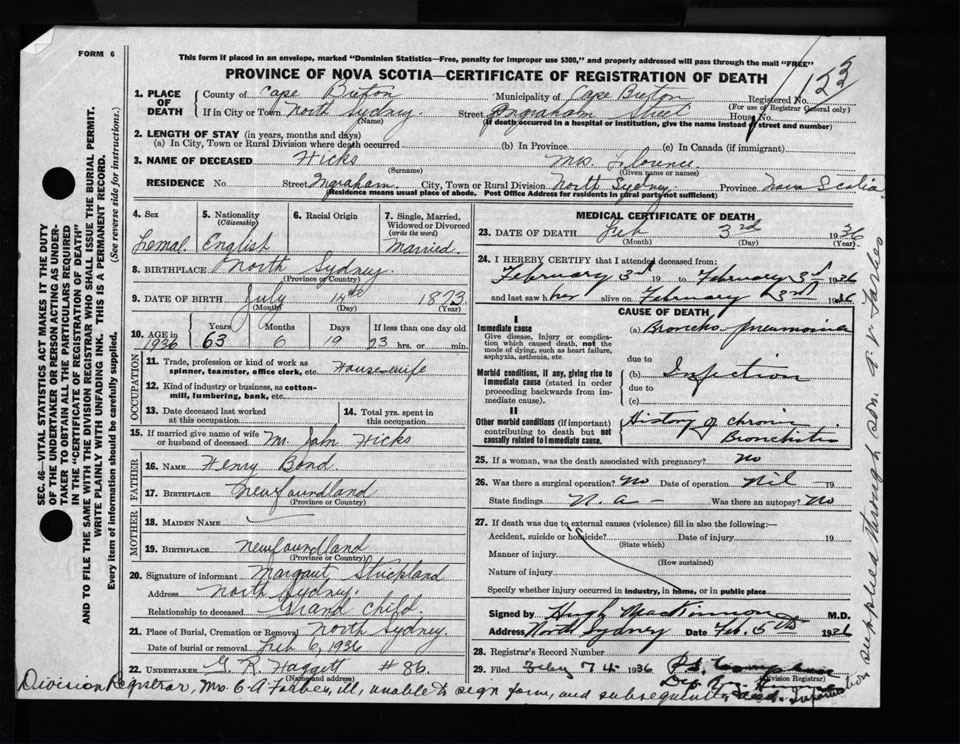 FORM 6
This form if placed in an envelope, marked "Dominion Statistics—Free, penalty for improper use $300," and properly addressed will pass through the mail "FREE"
PROVINCE OF NOVA SCOTIA—CERTIFICATE OF REGISTRATION OF DEATH
153
1. PLACE OF DEATH
County of Cape Breton Municipality of Cape Breton Registered No.
(For use of Registrar General only)
If in City or Town North Sydney Street Ingraham House No.
(Name) (If death occurred in a hospital or institution, give the name instead of street and number)
2. LENGTH OF STAY (in years, months and days)
(a) In City, Town or Rural Division where death occurred (b) In Province (c) In Canada (if immigrant)
3. NAME OF DECEASED Hicks Mrs. Florence
(Surname) (Given name or names)
RESIDENCE No. Street Ingraham. City, Town or Rural Division North Sydney Province Nova Scotia
(Residence means usual place of abode. Post Office Address for residents in rural parts not sufficient)
4. Sex
Femal
5. Nationality
(Citizenship)
English
6. Racial Origin
7. Single, Married, Widowed or Divorced
(write the word)
Married.
8. BIRTHPLACE North Sydney.
(Province or Country)
9. DATE OF BIRTH July 14th 1873
(Month) (Day) (Year)
10. AGE in Years Months Days If less than one day old
1936 63 6 19 23 hrs. or min.
OCCUPATION
11. Trade, profession or kind of work as spinner, teamster, office clerk, etc. Housewife
12. Kind of industry or business, as cotton-mill, lumbering, bank, etc.
13. Date deceased last worked at this occupation
14. Total yrs. spent in this occupation
15. If married give name of wife or husband of deceased M. John Hicks
FATHER
16. NAME Henry Bond
17. BIRTHPLACE Newfoundland
MOTHER
18. MAIDEN NAME
19. BIRTHPLACE Newfoundland
(Province or Country)
20. Signature of informant Margaret Strickland
Address North Sydney.
Relationship to deceased Grand Child.
21. Place of Burial, Cremation or Removal North Sydney.
Date of burial or removal Feb 6, 1936
22. UNDERTAKER G. R. Haggett #86.
(Name and address)
MEDICAL CERTIFICATE OF DEATH
23. DATE OF DEATH Feb 3rd 1936
(Month) (Day) (Year)
24. I HEREBY CERTIFY that I attended deceased from:
February 3rd 19 to February 3rd 1936
and last saw her alive on February 3rd 1936
CAUSE OF DEATH
I
Immediate cause
Give disease, injury or complication which caused death, not the mode of dying, such as heart failure, asphyxia, asthenia, etc.
(a) Broncho-pneumonia
due to
Morbid conditions, if any, giving rise to immediate cause (stated in order proceeding backwards from immediate cause).
(b) Infection
due to
(c)
II
Other morbid conditions (if important) contributing to death but not causally related to immediate cause.
History of chronic
Bronchitis
25. If a woman, was the death associated with pregnancy? No
26. Was there a surgical operation? No Date of operation Nil 19
State findings N.a— Was there an autopsy? No
27. If death was due to external causes (violence) fill in also the following:—
Accident, suicide or homicide? Date of injury 19
(State which)
Manner of injury
(How sustained)
Nature of injury
Specify whether injury occurred in industry, in home, or in public place
Signed by Hugh MacKinnon M.D.
Address North Sydney Date Feb. 5th 1936
28. Registrar's Record Number
29. Filed Feby 7th 1936
(Division Registrar)
Division Registrar, Mrs. C. A Forbes, ill, unable to sign form, and subsequently died. Information
supplied through son. A. V. Forbes
SEC. 46—VITAL STATISTICS ACT MAKES IT THE DUTY
OF THE UNDERTAKER OR PERSON ACTING AS UNDER-
TAKER TO OBTAIN ALL THE PARTICULARS REQUIRED
IN THE "CERTIFICATE OF REGISTRATION OF DEATH"
AND TO FILE THE SAME WITH THE DIVISION REGISTRAR WHO SHALL ISSUE THE BURIAL PERMIT.
WRITE PLAINLY WITH UNFADING INK. THIS IS A PERMANENT RECORD.
Every item of information should be carefully supplied. (See reverse side for instructions.)